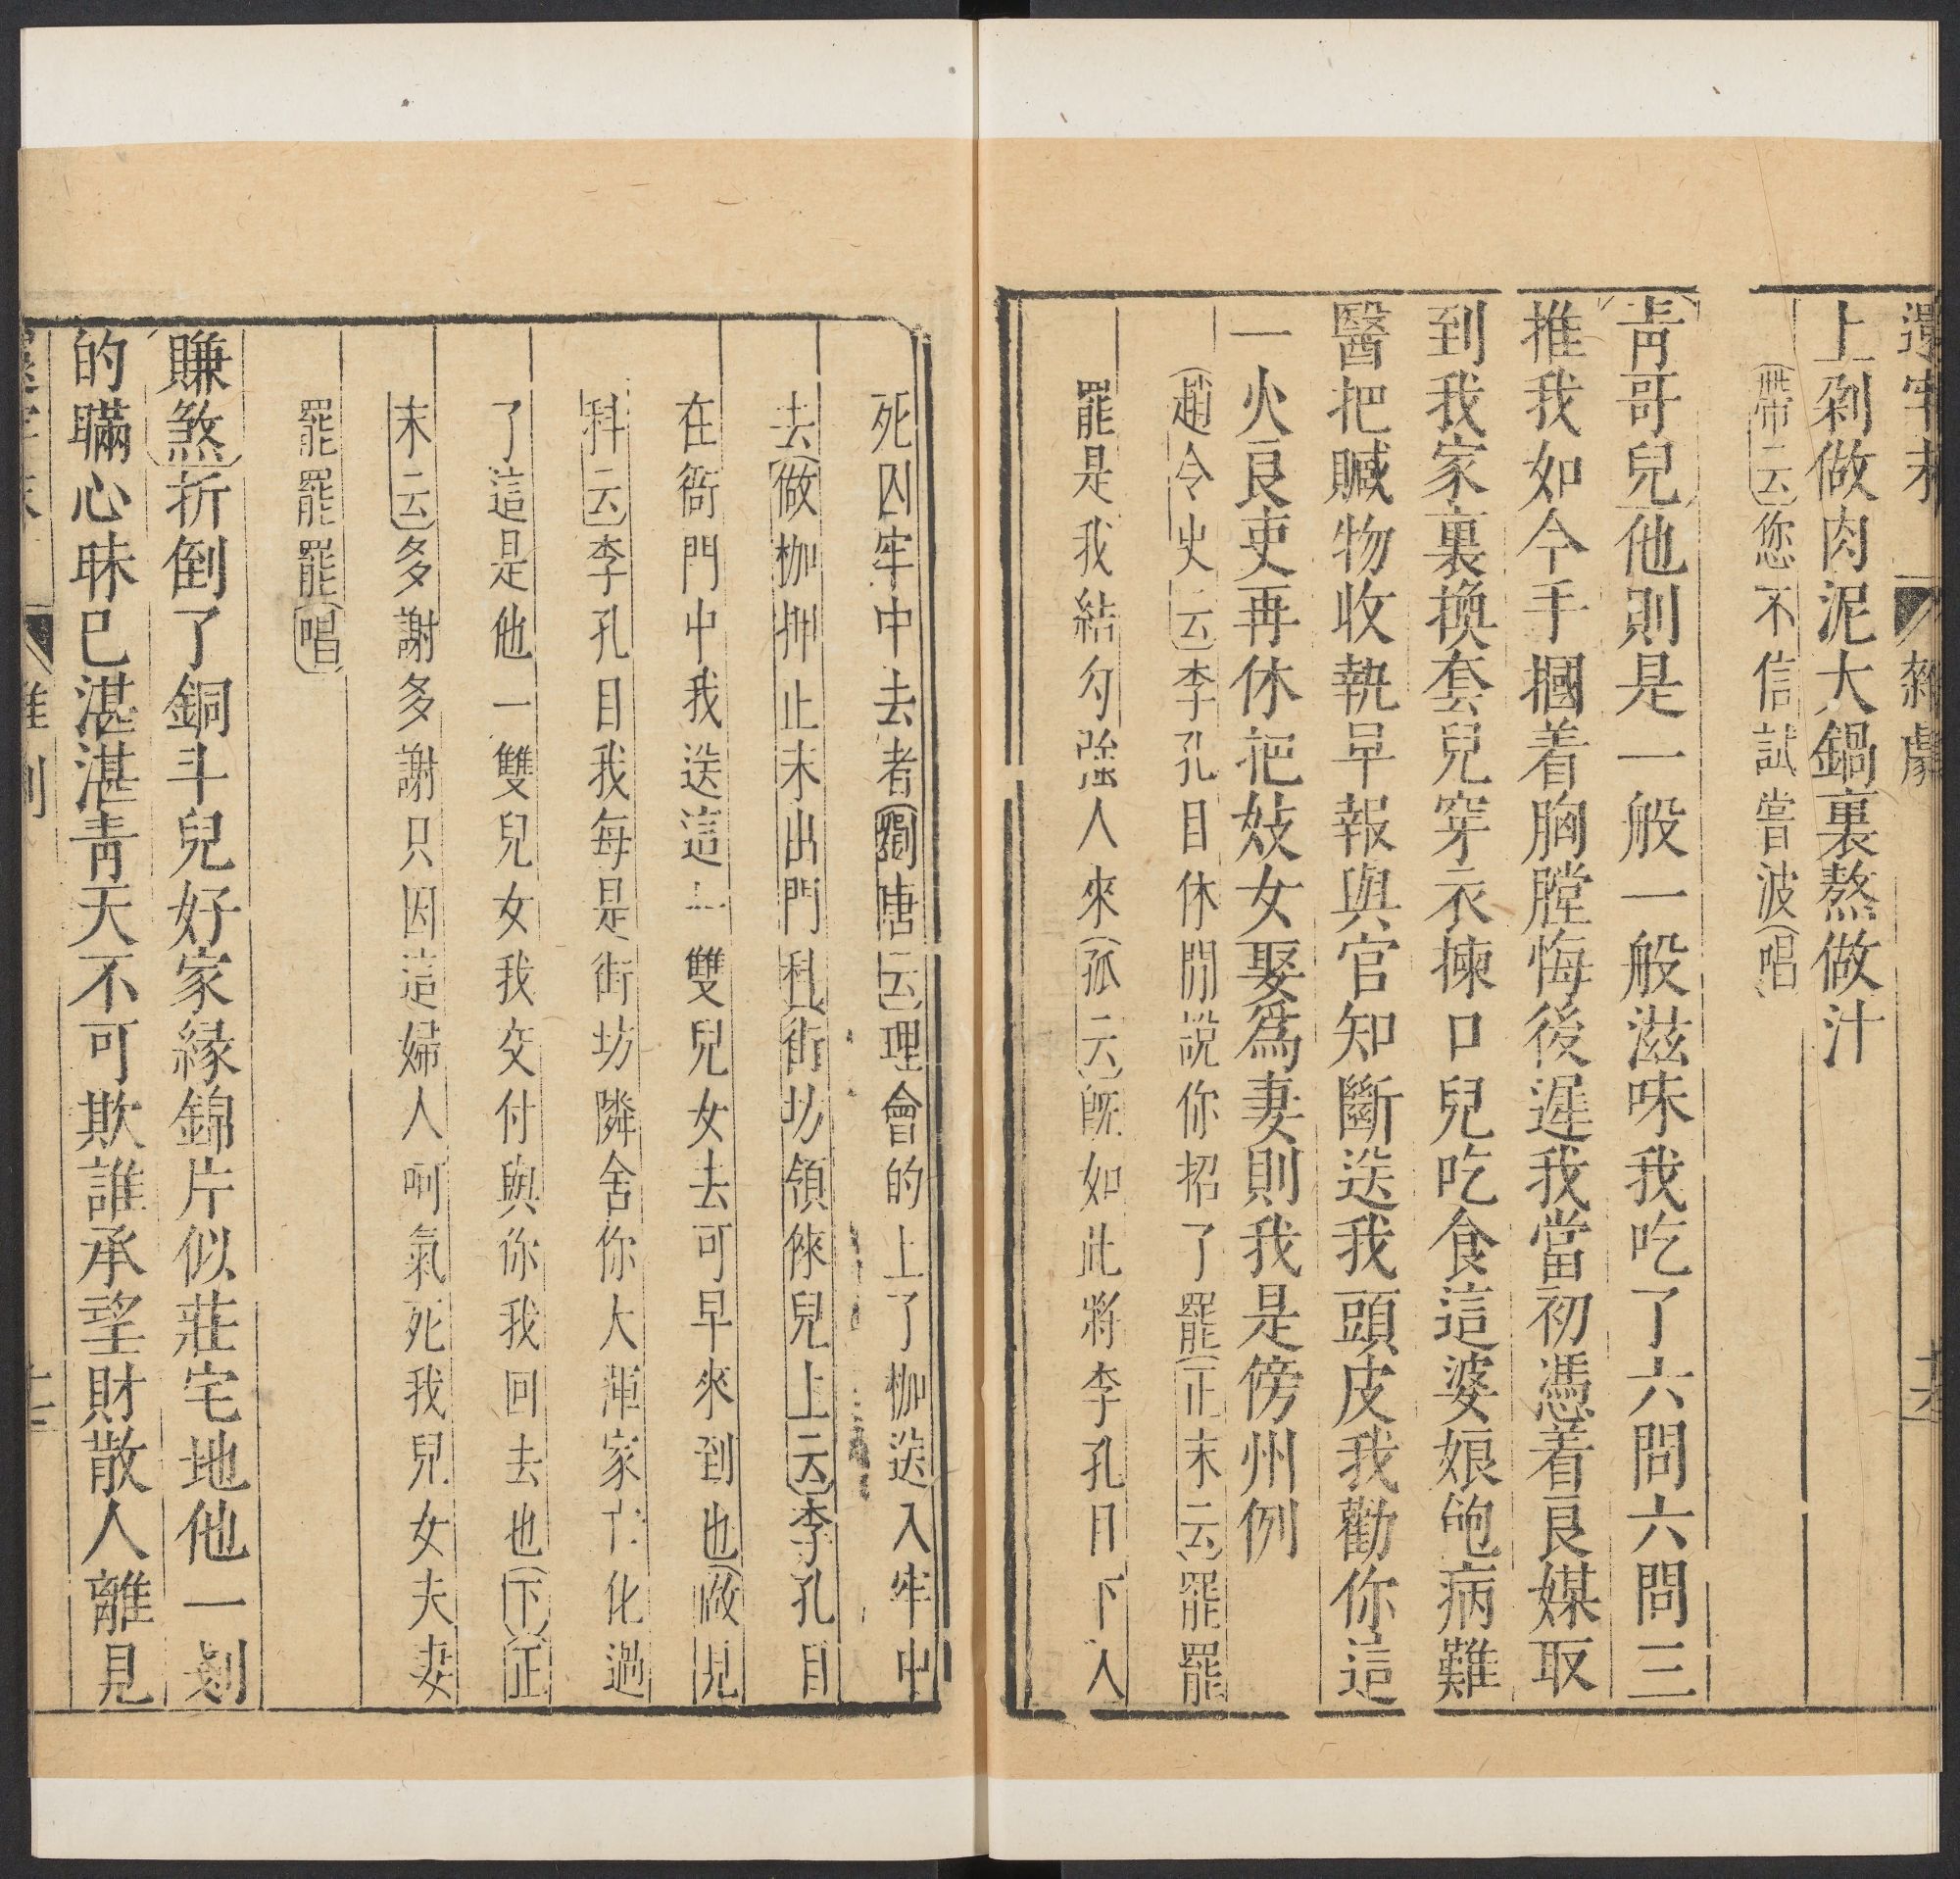 還牢末 雜劇
上剁做肉泥大鍋裏熬做汁
帶云您不信試嘗波唱
青哥兒他則是一般一般滋味我吃了六問六問三
推我如今手摑着胸膛悔後遲我當初憑着良媒取
到我家裏換套兒穿衣揀口兒吃食這婆娘飽病難
醫把贓物收執早報與官知斷送我頭皮我勸你這
一火良吏再休把妓女娶爲妻則我是傍州例
趙令史云李孔目休閒說你招了罷正末云罷罷
罷是我結勾強人來孤云既如此將李孔目下入
死囚牢中去者劉唐云理會的上了枷送入牢中
去做枷押正末出門科街坊領倈兒上云李孔目
在衙門中我送這一雙兒女去可早來到也做見
科云李孔目我每是街坊隣舍你大渾家亡化過
了這是他一雙兒女我交付與你我回去也下正
末云多謝多謝只因這婦人呵氣死我兒女夫妻
罷罷罷唱
賺煞折倒了銅斗兒好家緣錦片似莊宅地他一剗
的瞞心昧己湛湛青天不可欺誰承望財散人離見